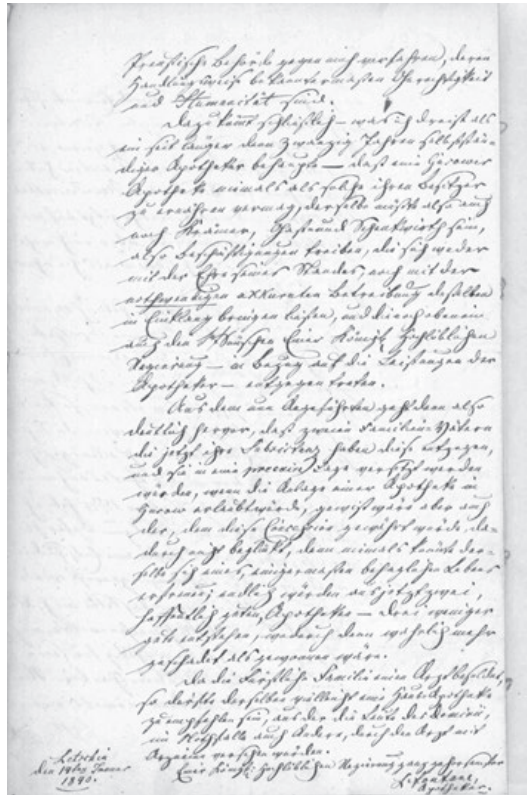 Preußische Behörde gegen mich verfahren, deren
Handlungsweise bekanntermaßen Gerechtigkeit
und Humanität sind.
Dazu kömmt schließlich – was ich dreist als
ein seit länger denn zwanzig Jahren selbststän-
diger Apotheker behaupte – daß eine
Apotheke niemals als solche ihren Besitzer
zu ernähren vermag, derselbe müßte also auch
noch Krämer, Gast und Schenkwirth sein,
also Beschäftigungen treiben, die sich weder
mit der Ehre seines Standes, noch mit der
nothwendigen akkuraten Betreibung desselben
in Einklang bringen laßen, und die noch obenein
auch den Wünschen Einer Königl. Hochlöblichen
Regierung – in Bezug auf die Leistungen der
Apotheker – entgegen treten.
Aus dem nun Angeführten geht denn also
deutlich hervor, daß zweien Familien Vätern
die jetzt ihre Subsistenz haben diese entzogen,
und sie in eine Lage versetzt werden
würden, wenn die Anlage einer Apotheke in
erlaubt würde, gewiß wäre aber auch
der, dem diese Concession gewährt würde, da-
durch nicht beglückt, denn niemals könnte der-
selbe sich eines, einigermaßen behaglichen Lebens
erfreuen; endlich würden aus jetzt zwei,
hoffentlich guten, Apotheken – drei weniger
gute entstehen, wodurch denn wahrlich mehr
geschadet als gewonnen wäre.
Da die Fürstliche Familie einen Arzt besoldet,
so dürfte derselben vielleicht eine Haus-Apotheke
zu empfehlen sein, aus der die Leute des Domini,
im Nothfalle auch Andere, durch den Arzt mit
Arzenei versehen werden.
Einer Königl: Hochlöblichen Regierung ganz gehorsamster
Letschin
den 19ten Januar
1840.
L. Fontane,
Apotheker.